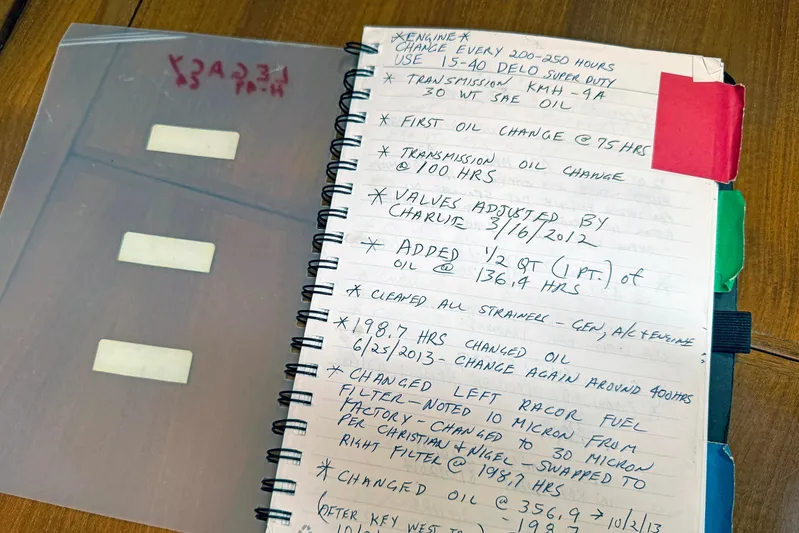 LEGACY
*ENGINE*
CHANGE EVERY 200-250 HOURS
USE 15-40 DELO SUPER DUTY
* TRANSMISSION KMH-4A
30 WT SAE OIL
* FIRST OIL CHANGE @ 75 HRS
* TRANSMISSION OIL CHANGE
@ 100 HRS
* VALVES ADJUSTED BY
CHARLIE 3/16/2012
* ADDED 1/2 QT (1 PT.) of
OIL @ 136.4 HRS
* CLEANED ALL STRAINERS - GEN, A/C + ENGINE
* 198.7 HRS CHANGED OIL
6/25/2013 - CHANGE AGAIN AROUND 400HRS
* CHANGED LEFT RACOR FUEL
FILTER - NOTED 10 MICRON FROM
FACTORY - CHANGED TO 30 MICRON
PER CHRISTIAN & NIGEL - SWAPPED TO
RIGHT FILTER @ 198.7 HRS
* CHANGED OIL @ 356.9 → 10/2/13
(AFTER KEY WEST - 198.7